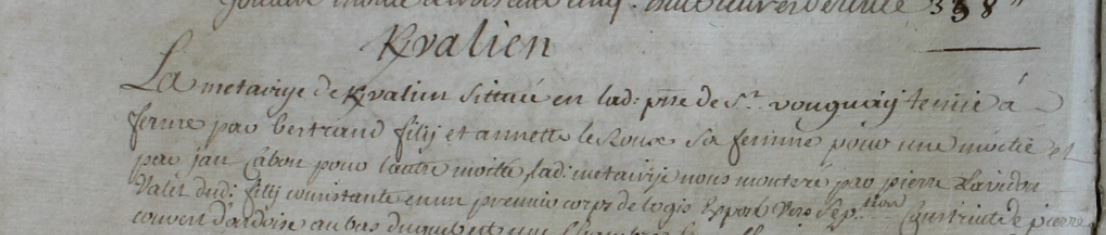 338"
Kvalien
La metairye de Kvalien sittué en lad: pnre de St. vouguay tenue á
ferme par bertrand filly et annette le Roux sa femme pour une moitié et
par jan Cabon pour lautre moitté, lad: metairye nous montere par pierre
Valet dud: filly consistante en un premie corps de logis Exporté vers Septtion Construitte de pierre
couvert d'ardoise au bas duquel est une